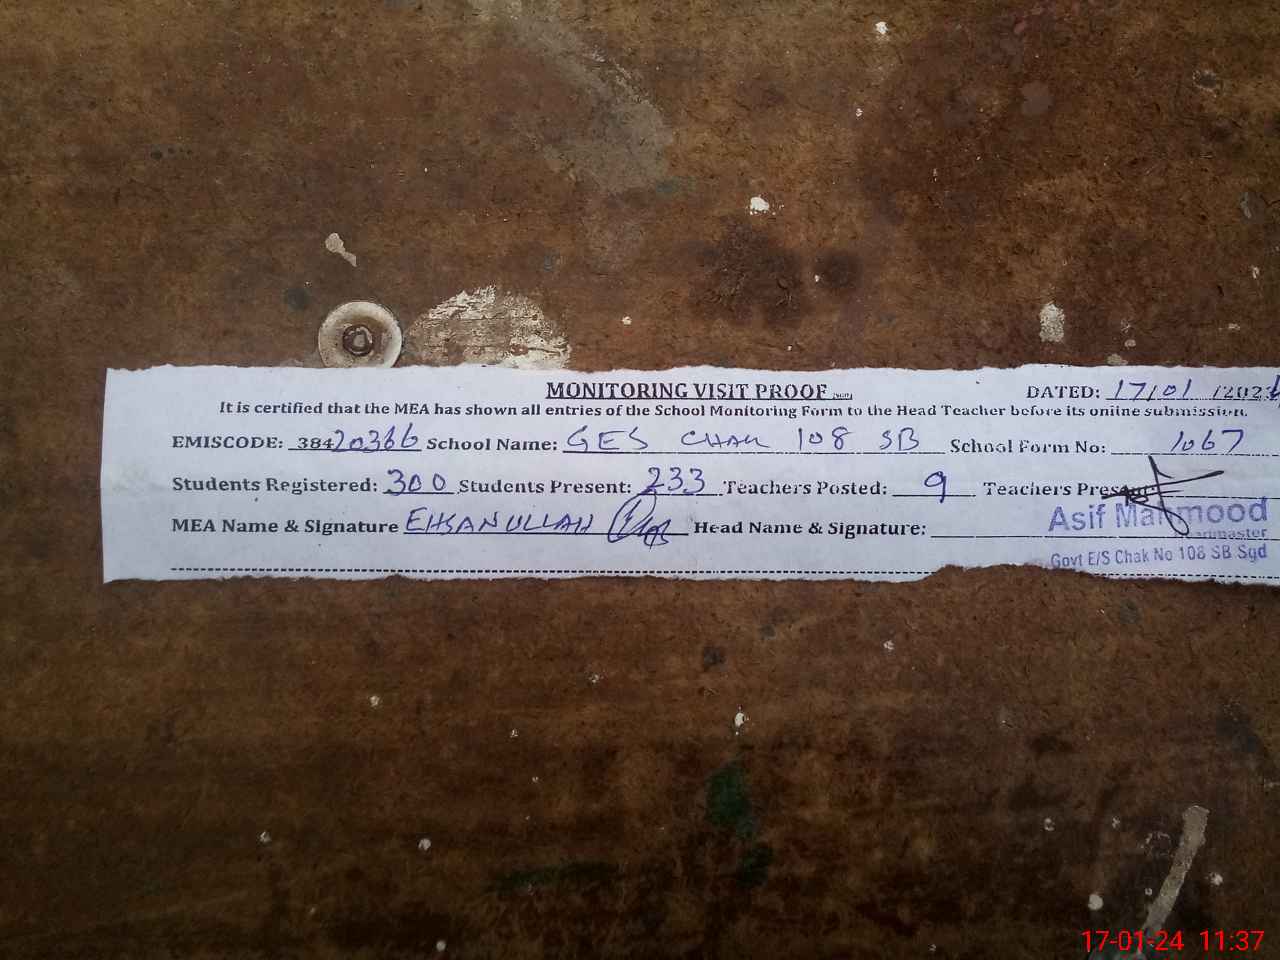 MONITORING VISIT PROOF
DATED: 17/01/2024
It is certified that the MEA has shown all entries of the School Monitoring Form to the Head Teacher before its online submission.
EMISCODE: 38420366 School Name: GES CHAK 108 SB School Form No: 1067
Students Registered: 300 Students Present: 233 Teachers Posted: 9 Teachers Present
MEA Name & Signature EHSANULLAH Head Name & Signature:
Asif Mahmood
Headmaster
Govt E/S Chak No 108 SB Sgd
17-01-24 11:37